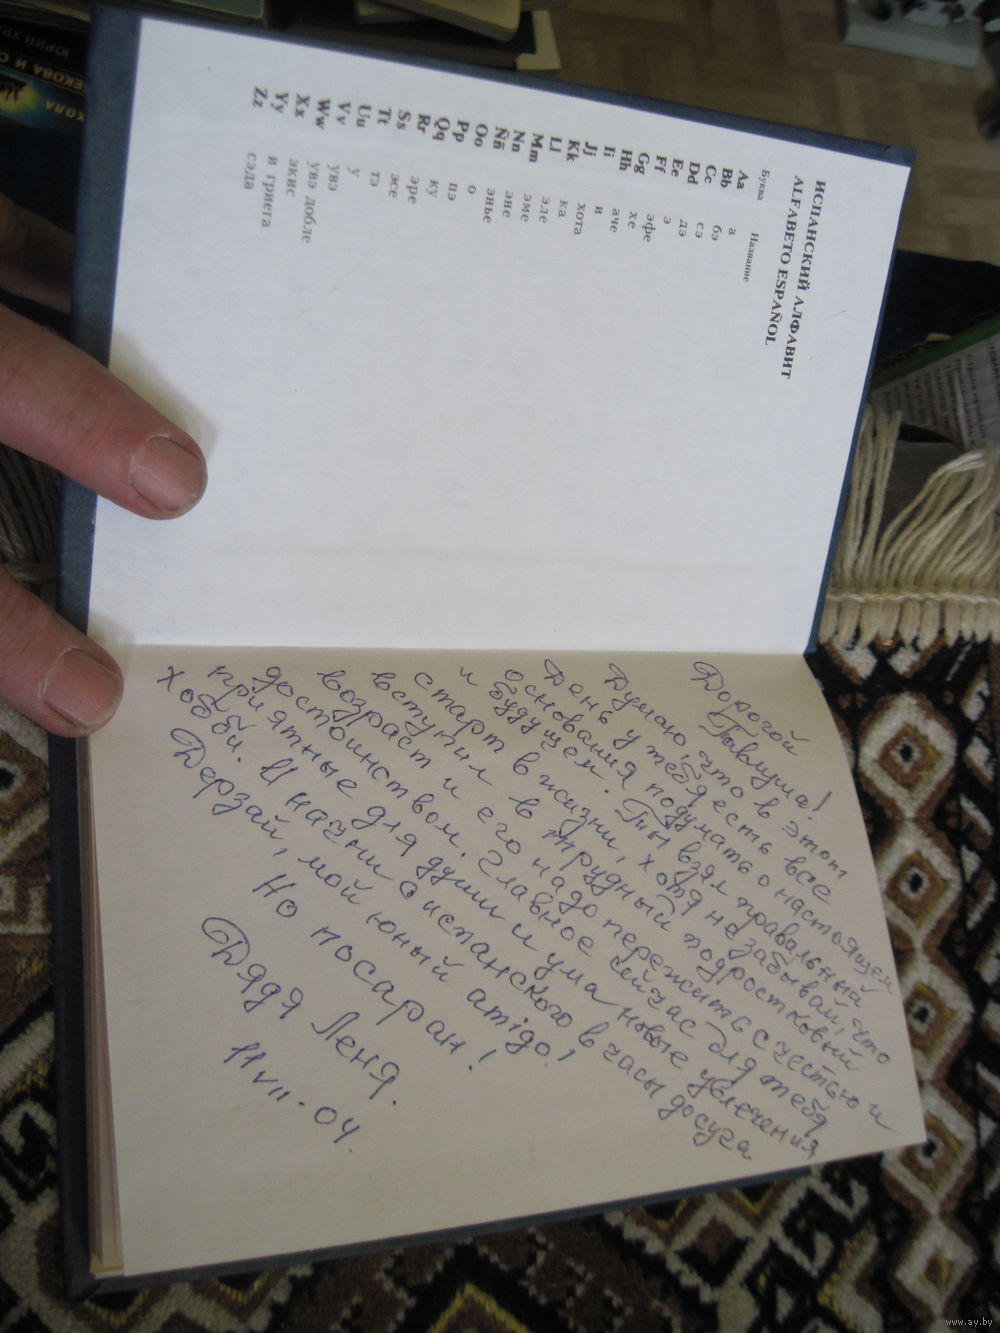 ИСПАНСКИЙ АЛФАВИТ
ALFABETO ESPAÑOL
Буква Название
Aa а
Bb бэ
Cc сэ
Dd дэ
Ee э
Ff эфе
Gg хе
Hh аче
Ii и
Jj хота
Kk ка
Ll эле
Mm эме
Nn эне
Ññ энье
Oo о
Pp пэ
Qq ку
Rr эре
Ss эсе
Tt тэ
Uu у
Vv увэ
Ww увэ добле
Xx экис
Yy и гриега
Zz сэда
Дорогой
Павлуша!
Думаю, что в этот
День у тебя есть все
основания подумать о настоящем
и будущем. Ты взял правильный
старт в жизни, хотя не забывай, что
вступил в трудный подростковый
возраст и его надо пережить с честью и
достоинством. Главное сейчас для тебя
приятные для души и ума новые увлечения
хобби. И начни с испанского в часы досуга
Дерзай, мой юный amigo!
Но посаран!
Дядя Леня.
11 VII-04.
ЮРИЙ
КОЛА
www.ay.by